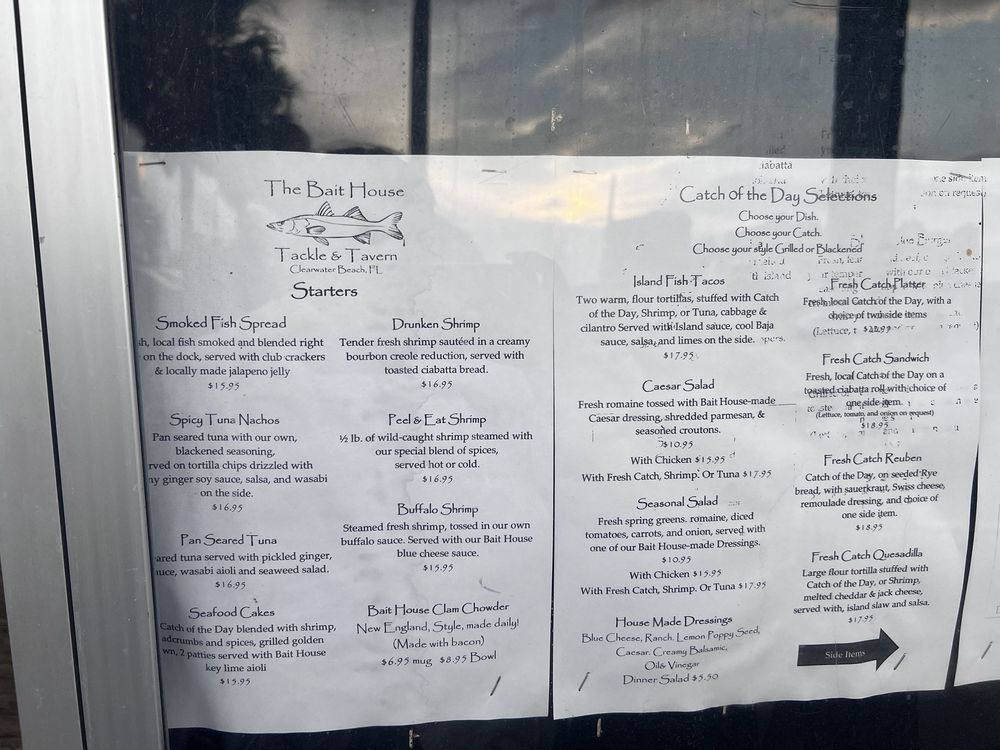 The Bait House
Tackle & Tavern
Clearwater Beach, FL
Starters
Smoked Fish Spread
local fish smoked and blended right
on the dock, served with club crackers
& locally made jalapeno jelly
$15.95
Spicy Tuna Nachos
Pan seared tuna with our own,
blackened seasoning,
on tortilla chips drizzled with
ginger soy sauce, salsa, and wasabi
on the side.
$16.95
Pan Seared Tuna
tuna served with pickled ginger,
wasabi aioli and seaweed salad.
$16.95
Seafood Cakes
Catch of the Day blended with shrimp,
and spices, grilled golden
2 patties served with Bait House
key lime aioli
$15.95
Drunken Shrimp
Tender fresh shrimp sautéed in a creamy
bourbon creole reduction, served with
toasted ciabatta bread.
$16.95
Peel & Eat Shrimp
½ lb. of wild-caught shrimp steamed with
our special blend of spices,
served hot or cold.
$16.95
Buffalo Shrimp
Steamed fresh shrimp, tossed in our own
buffalo sauce. Served with our Bait House
blue cheese sauce.
$15.95
Bait House Clam Chowder
New England, Style, made daily!
(Made with bacon)
$6.95 mug $8.95 Bowl
Catch of the Day Selections
Choose your Dish.
Choose your Catch.
Choose your style Grilled or Blackened
Island Fish Tacos
Two warm, flour tortillas, stuffed with Catch
of the Day, Shrimp, or Tuna, cabbage &
cilantro Served with Island sauce, cool Baja
sauce, salsa, and limes on the side.
$17.95
Caesar Salad
Fresh romaine tossed with Bait House-made
Caesar dressing, shredded parmesan, &
seasoned croutons.
$10.95
With Chicken $15.95
With Fresh Catch, Shrimp. Or Tuna $17.95
Seasonal Salad
Fresh spring greens. romaine, diced
tomatoes, carrots, and onion, served with
one of our Bait House-made Dressings.
$10.95
With Chicken $15.95
With Fresh Catch, Shrimp. Or Tuna $17.95
House Made Dressings
Blue Cheese, Ranch. Lemon Poppy Seed,
Caesar. Creamy Balsamic,
Oil & Vinegar
Dinner Salad $5.50
Fresh Catch Platter
Fresh, local Catch of the Day, with a
choice of two side items
Fresh Catch Sandwich
Fresh, local Catch of the Day on a
toasted ciabatta roll with choice of
one side item.
(Lettuce, tomato, and onion on request)
$18.95
Fresh Catch Reuben
Catch of the Day, on seeded Rye
bread, with sauerkraut, Swiss cheese,
remoulade dressing, and choice of
one side item.
$18.95
Fresh Catch Quesadilla
Large flour tortilla stuffed with
Catch of the Day, or Shrimp,
melted cheddar & jack cheese,
served with, island slaw and salsa.
$17.95
Side Items